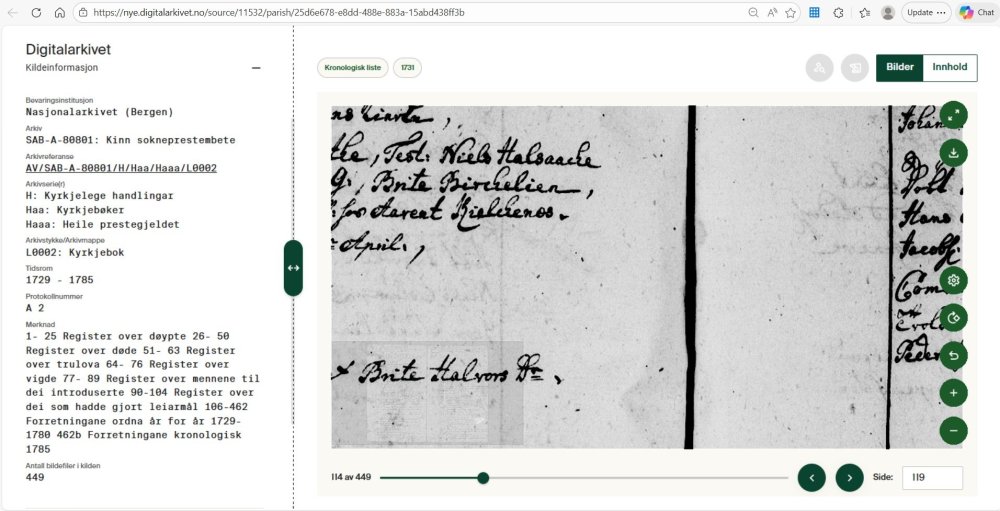 https://nye.digitalarkivet.no/source/11532/parish/25d6e678-e8dd-488e-883a-15abd438ff3b
Update ···
Chat
Digitalarkivet
Kildeinformasjon
Bevaringsinstitusjon
Nasjonalarkivet (Bergen)
Arkiv
SAB-A-80801: Kinn sokneprestembete
Arkivreferanse
AV/SAB-A-80801/H/Haa/Haaa/L0002
Arkivserie(r)
H: Kyrkjelege handlingar
Haa: Kyrkjebøker
Haaa: Heile prestegjeldet
Arkivstykke/Arkivmappe
L0002: Kyrkjebok
Tidsrom
1729 - 1785
Protokollnummer
A 2
Merknad
1- 25 Register over døypte 26- 50
Register over døde 51- 63 Register
over trulova 64- 76 Register over
vigde 77- 89 Register over mennene til
dei introduserte 90-104 Register over
dei som hadde gjort leiarmål 106-462
Forretningane ordna år for år 1729-
1780 462b Forretningane kronologisk
1785
Antall bildefiler i kilden
449
Kronologisk liste
1731
Bilder
Innhold
, Test: Niels Halsaache
Brite Birchelien,
for Aarent Kielchenes.
April.,
Brite Halvors Dr.,
Hans
Jacobs
114 av 449
Side:
119